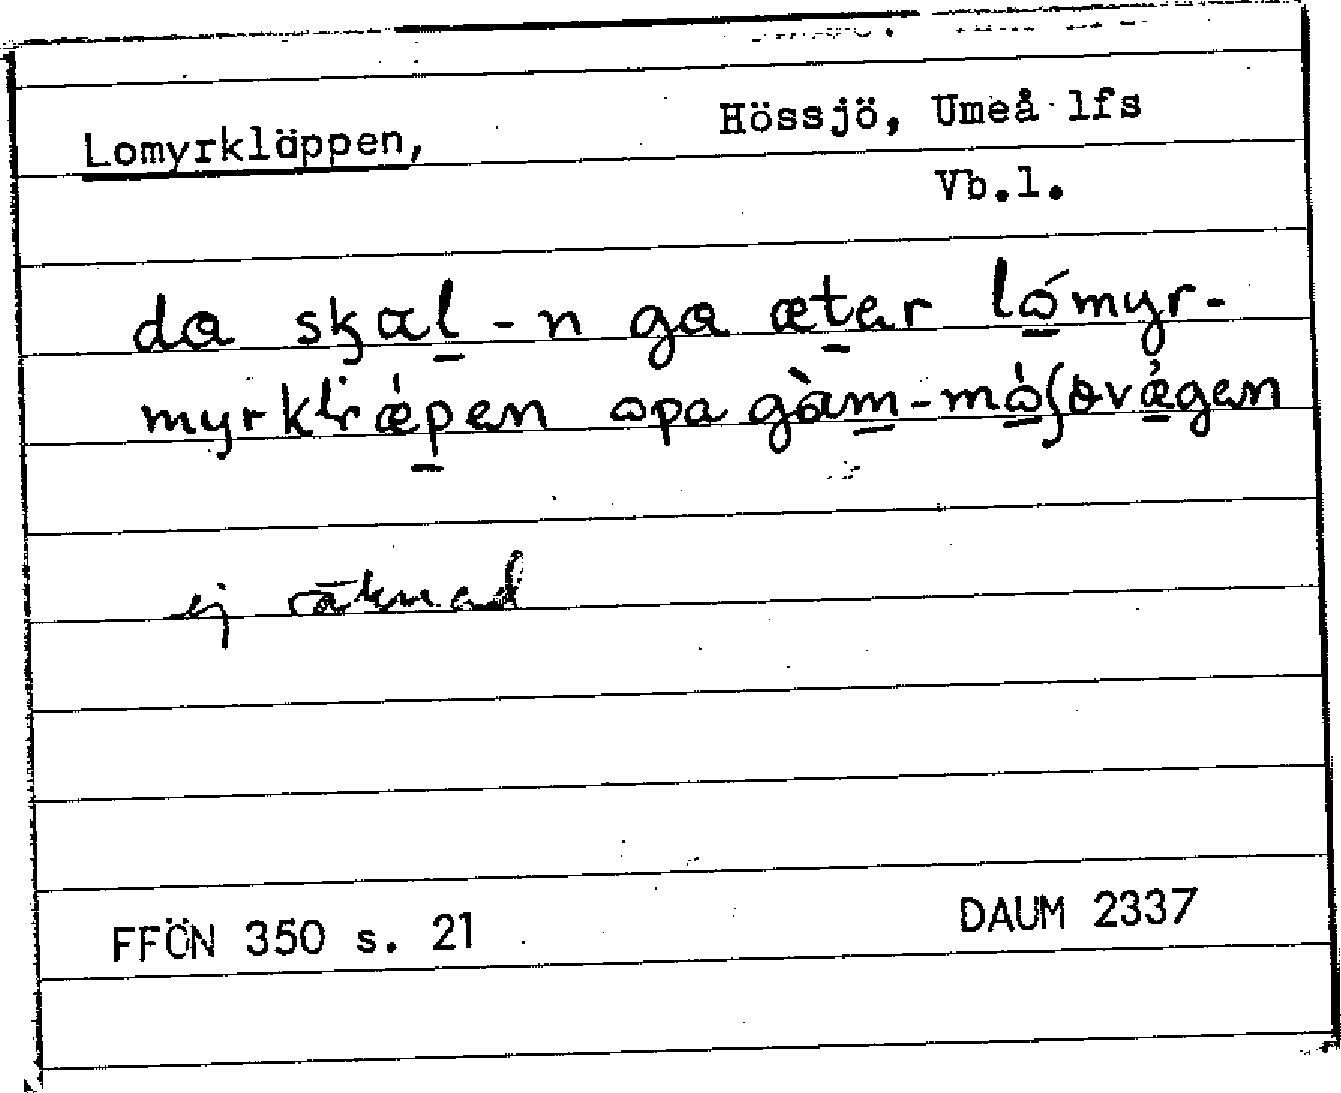 Lomyrkläppen, Hössjö, Umeå lfs
Vb.l.
da skal-n ga æter lómyr-
myrklæpen opa gàm-mósovægen
ej räknad
FFÖN 350 s. 21 DAUM 2337